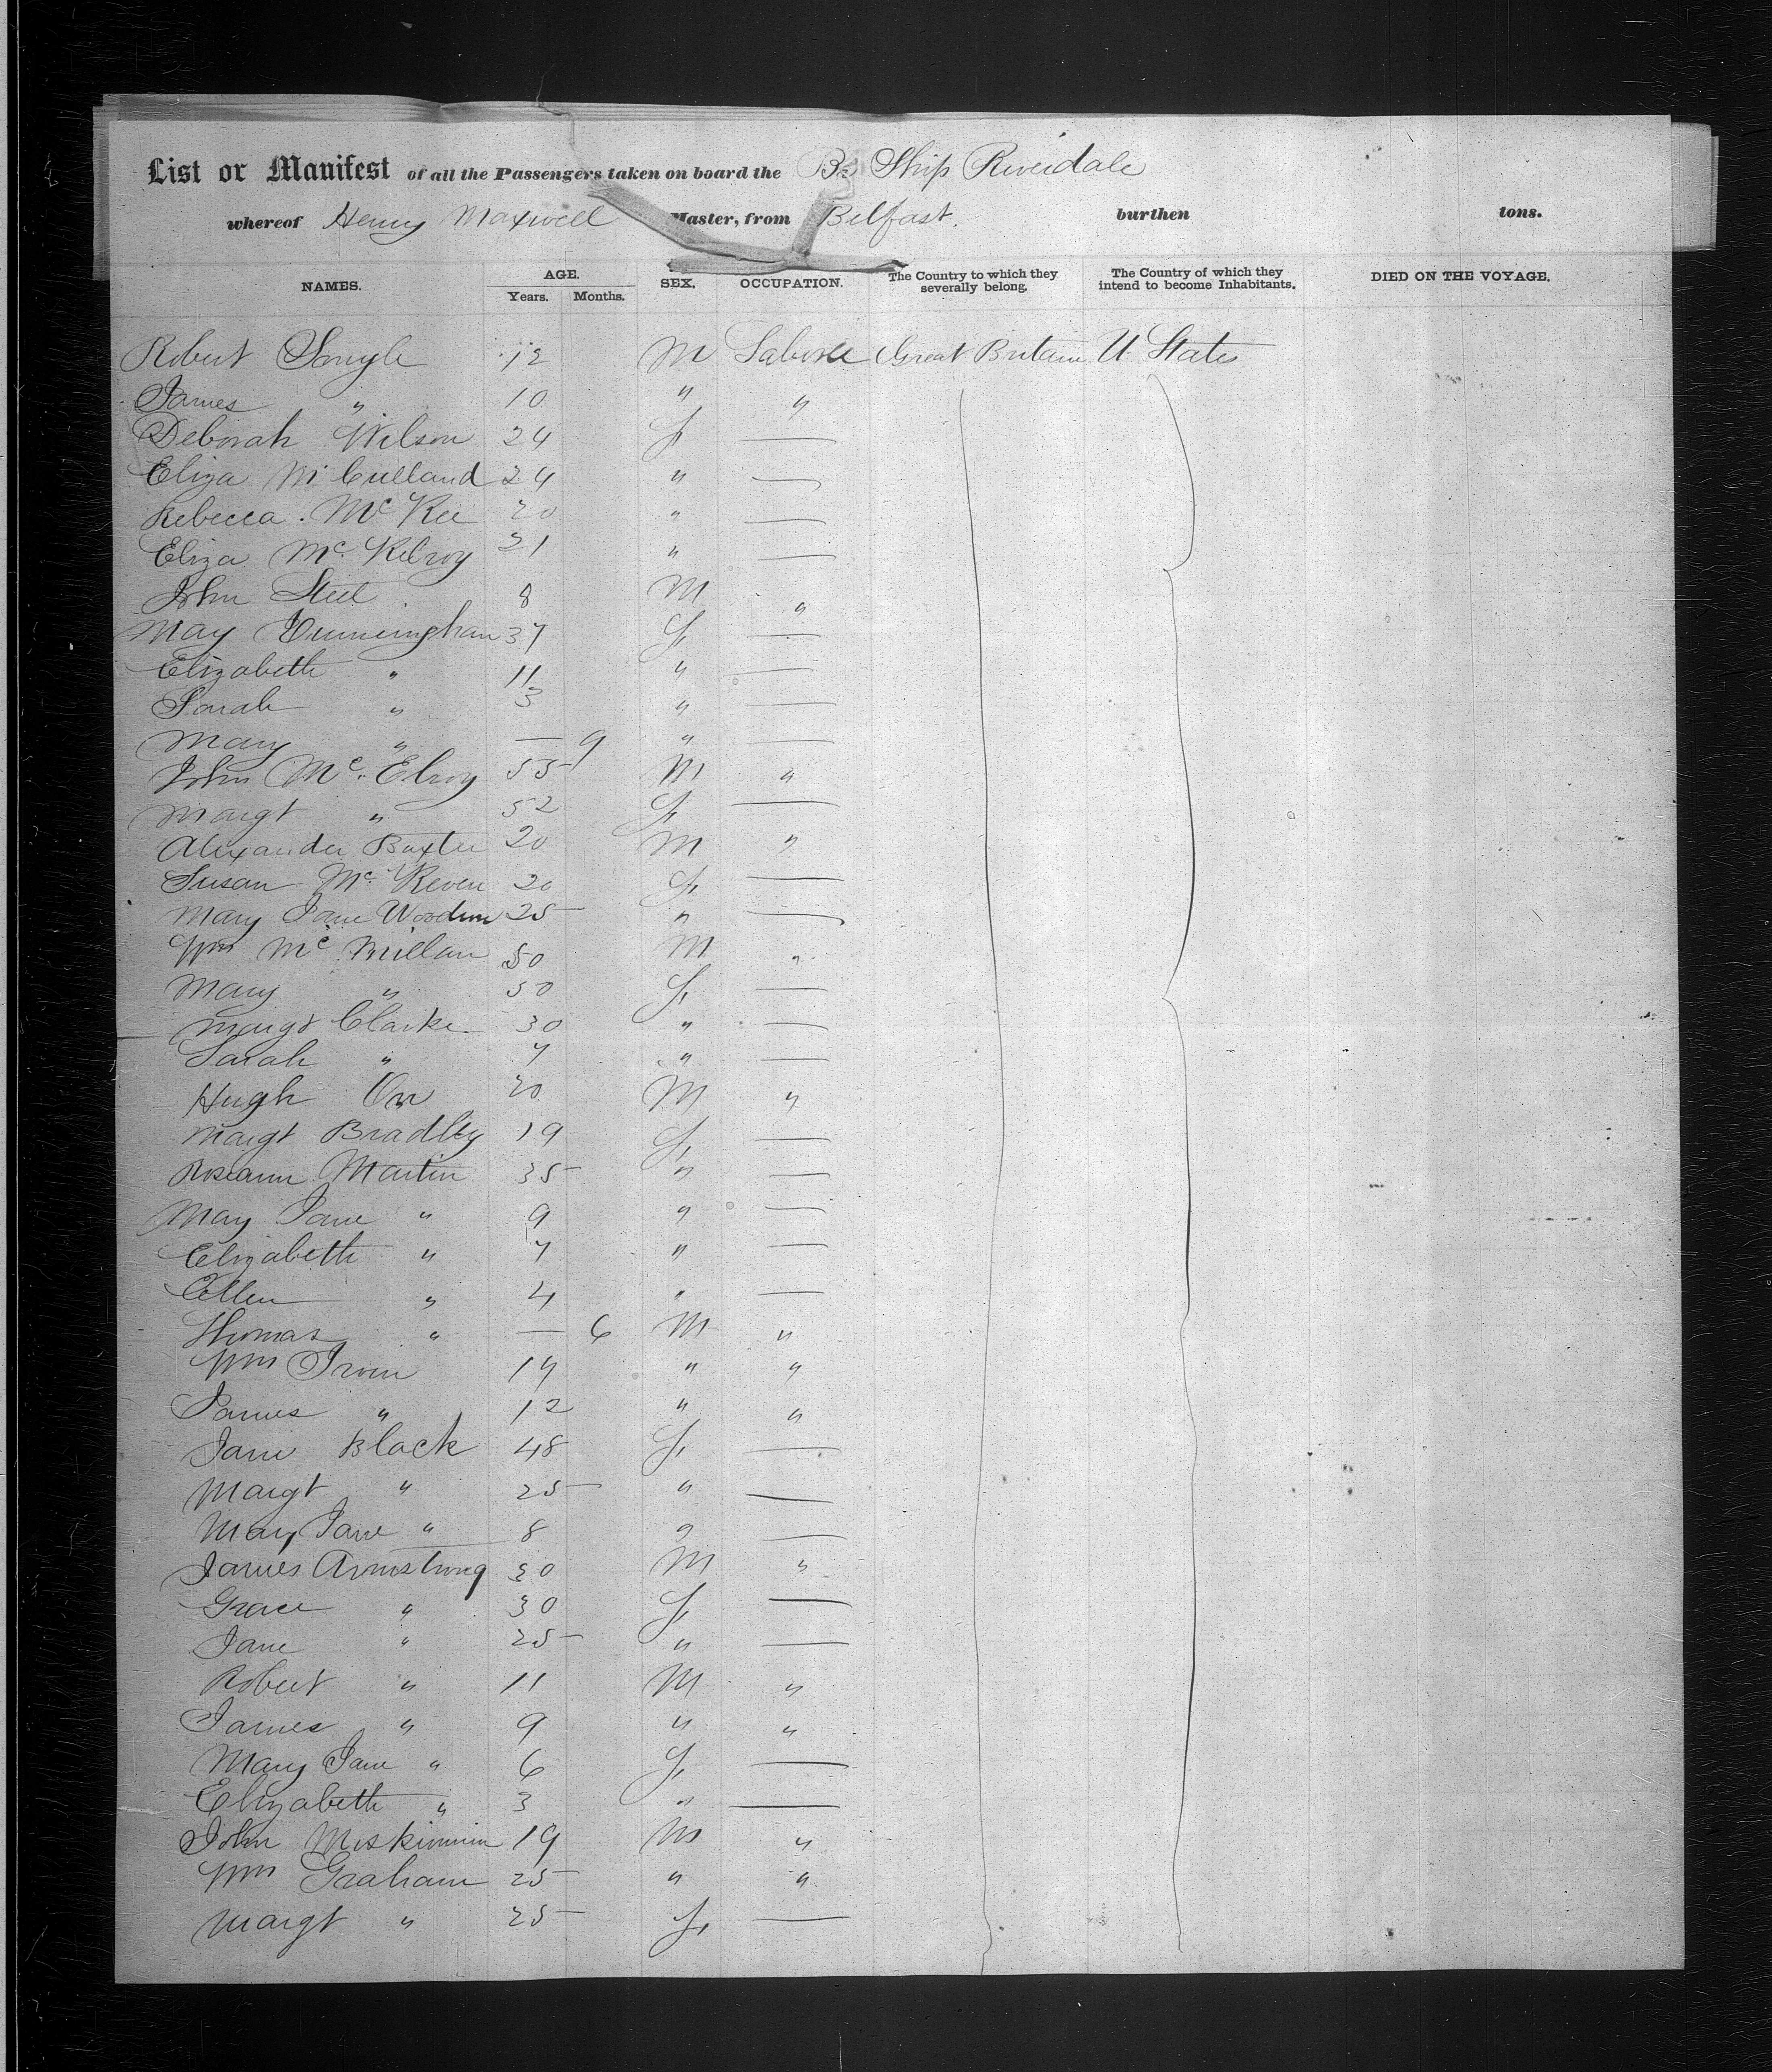 List or Manifest of all the Passengers taken on board the Br Ship Riverdale
whereof Henry Maxwell Master, from Belfast. burthen tons.
NAMES. AGE. Years. Months. SEX. OCCUPATION. The Country to which they severally belong. The Country of which they intend to become Inhabitants. DIED ON THE VOYAGE.
Robert 12 M Laborer Great Britain U States
James " 10 " "
Deborah Wilson 24 F —
Eliza 24 " —
Rebecca McKee 20 " —
Eliza McKelroy 21 " —
John Steel 8 M "
May Cunningham 37 F —
Elizabeth " 11 " —
Sarah " 3 " —
Mary " — 9 " —
John McElroy 55 M "
Margt " 52 F —
Alexander Baxter 20 M "
Susan 20 F —
Mary Jane 25 " —
Wm McMillan 50 M "
Mary " 50 F —
Margt Clarke 30 " —
Sarah " 7 " —
Hugh Orr 20 M "
Margt Bradley 19 F —
Roseann Martin 35 " —
May Jane " 9 " —
Elizabeth " 7 " —
Ellen " 4 " —
Thomas " — 6 M "
Wm Irvin 17 " "
James " 12 " "
Jane Black 48 F —
Margt " 25 " —
Mary Jane " 8 " —
James Armstrong 30 M "
Grace " 30 F —
Jane " 25 " —
Robert " 11 M "
James " 9 " "
Mary Jane " 6 F —
Elizabeth " 3 " —
John Miskimmin 19 M "
Wm Graham 25 " "
Margt " 25 F —